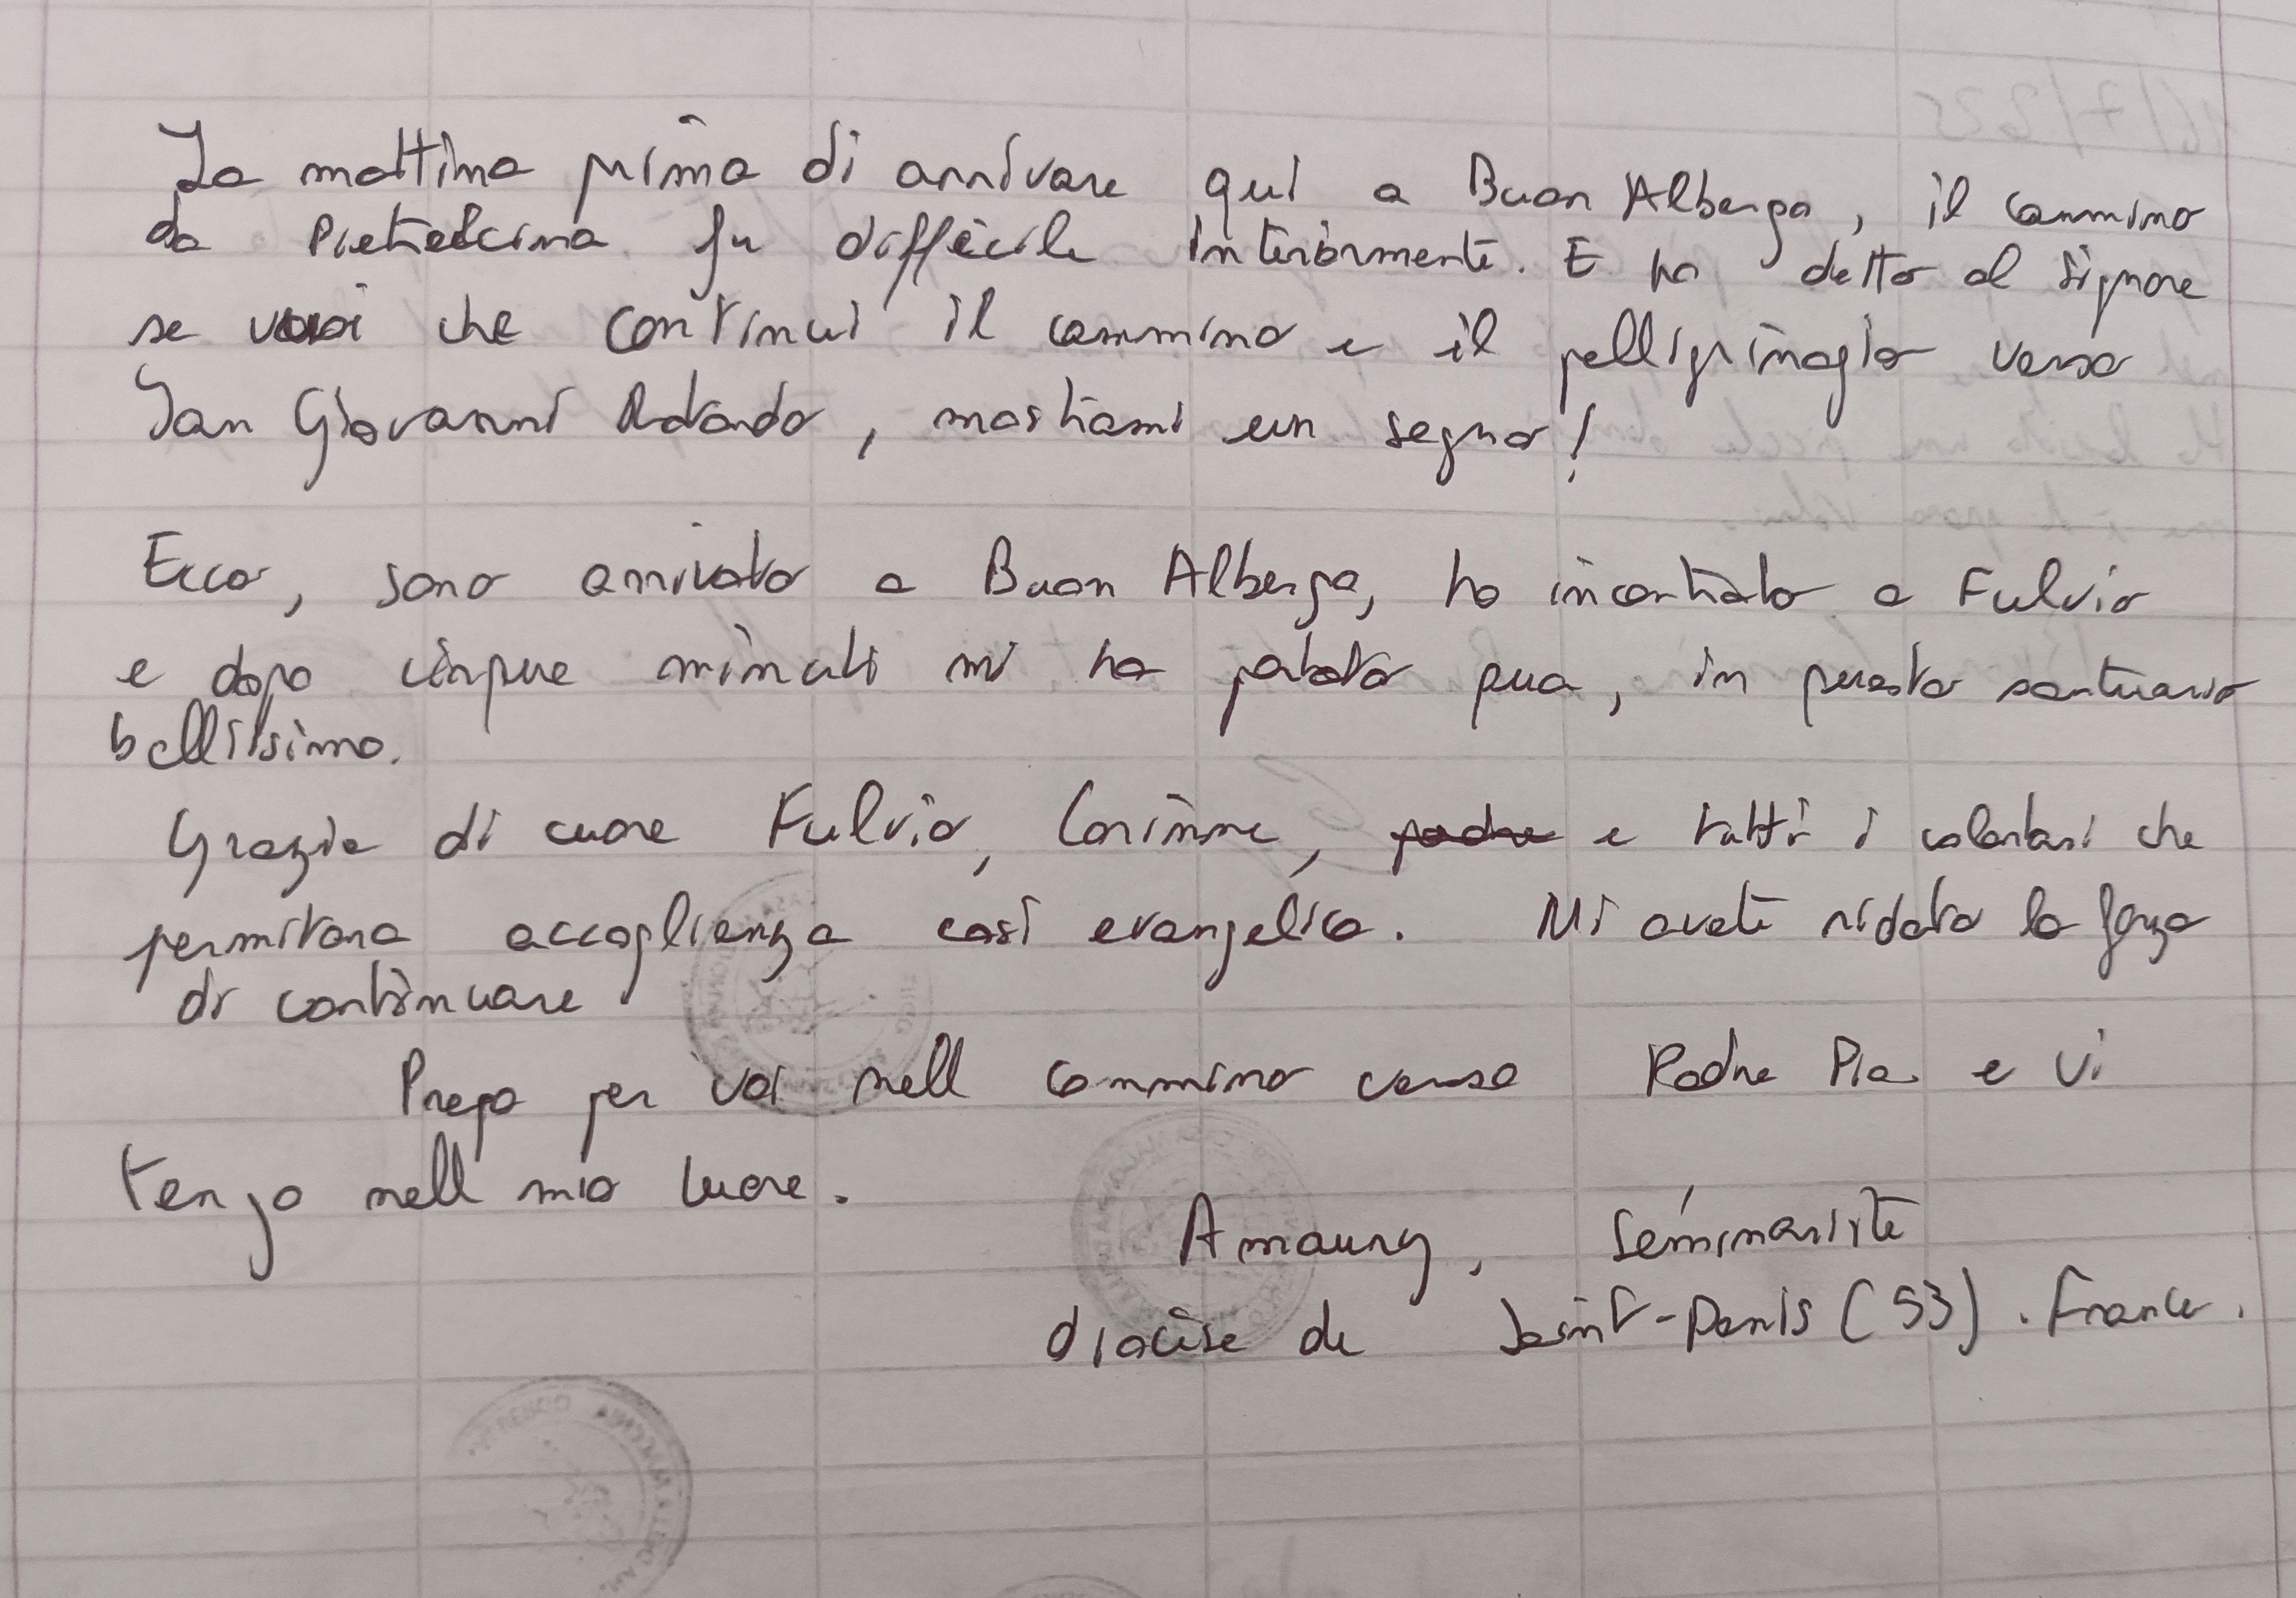 La mattina prima di arrivare qui a Buon Albergo, il cammino
da Pietrelcina fu difficile interiormente. E ho detto al Signore
se vuoi che continui il cammino e il pelligrinagio verso
San Giovanni Rotondo, mostrami un segno!
Ecco, sono arrivato a Buon Albergo, ho incontrato a Fulvio
e dopo cinque minuti mi ha portato qua, in questo santuario
bellissimo.
Grazie di cuore Fulvio, Corinne, e tutti i volontari che
permitono accoglienza così evangelica. Mi avete ridato la forza
di continuare
Prego per voi nell cammino verso Padre Pio e vi
tengo nell mio cuore.
Amaury, séminariste
diocèse de Saint-Denis (93). France.